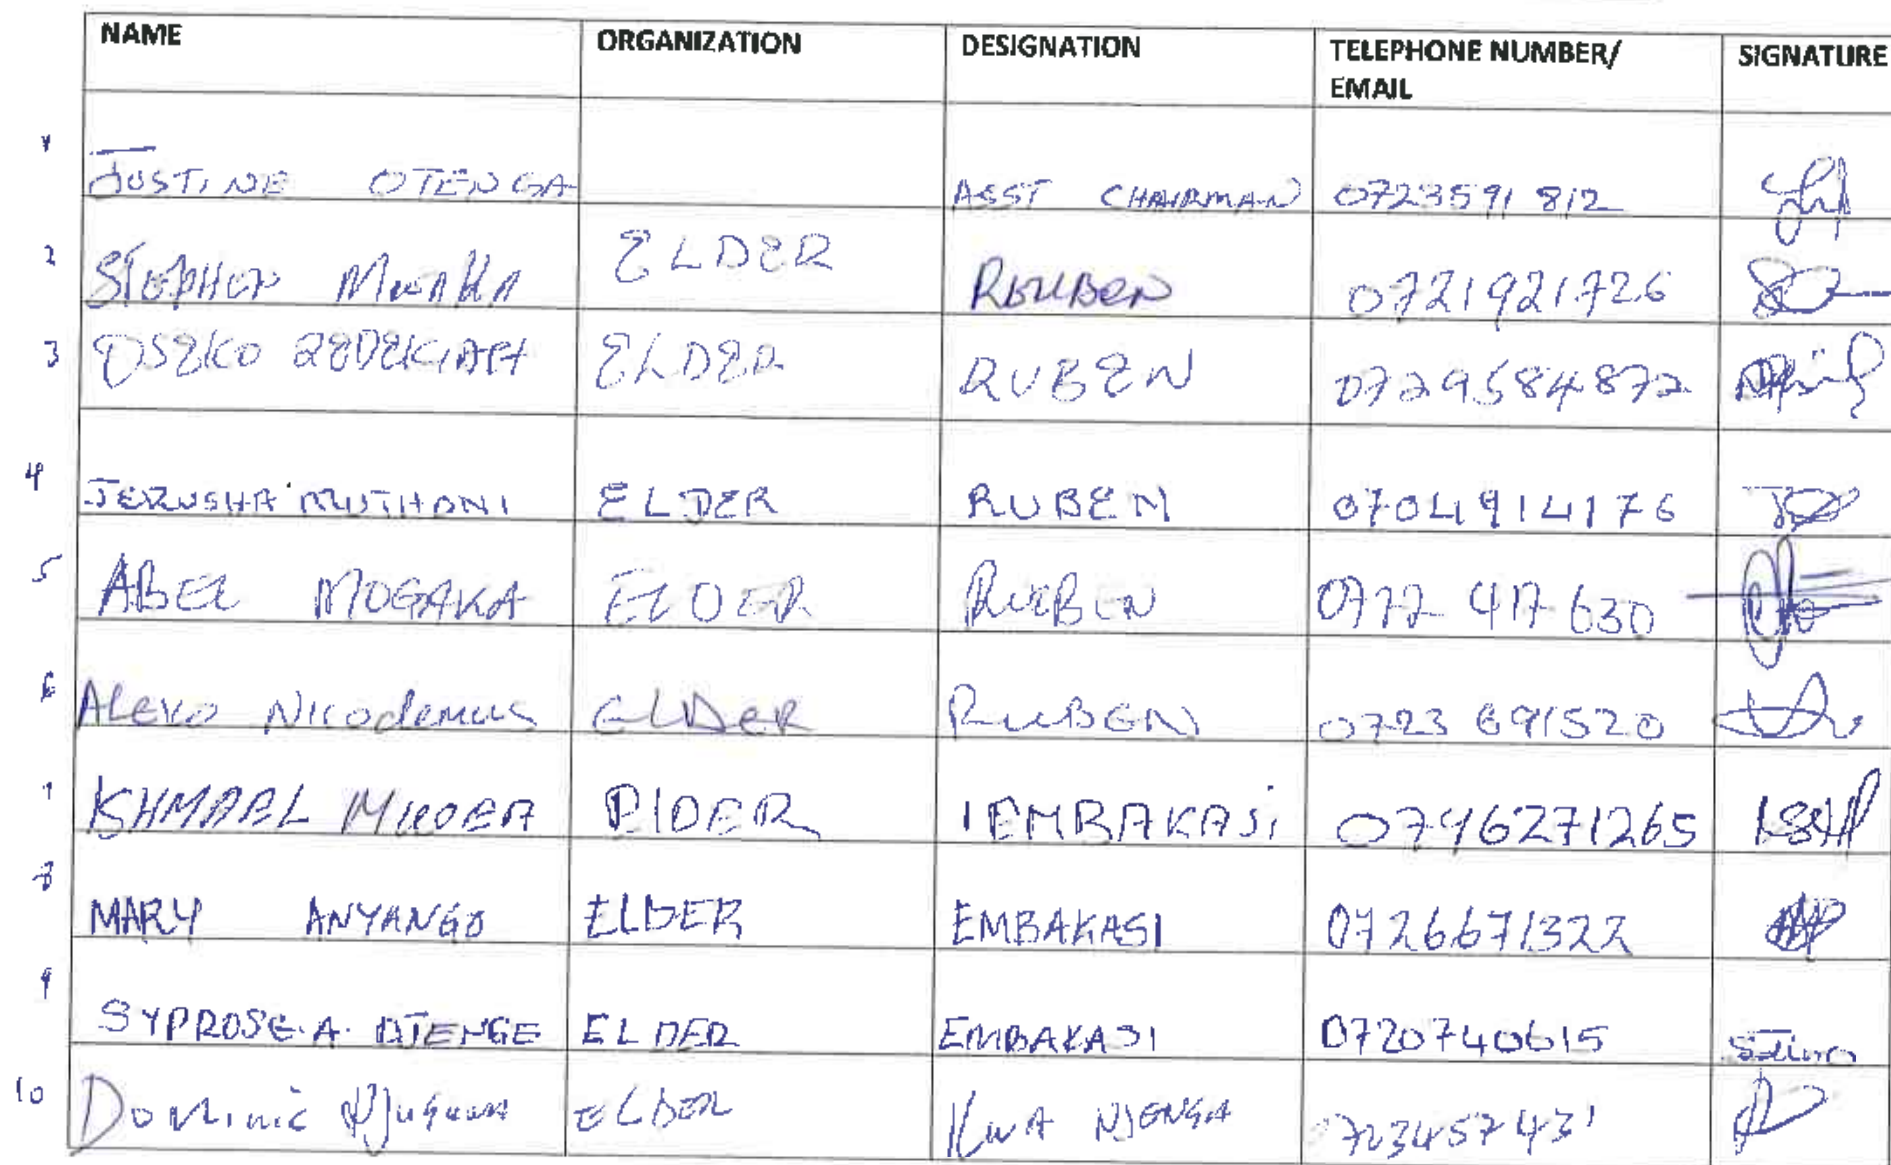 NAME ORGANIZATION DESIGNATION TELEPHONE NUMBER/ SIGNATURE
EMAIL
1 JUSTINE OTENGA ASST CHAIRMAN 0723591812
2 STEPHEN ELDER REUBEN 0721921726
3 OSEKO ZEDEKIAH ELDER RUBEN 0729584872
4 JERUSHA MUTHONI ELDER RUBEN 0704914176
5 ABEL MOGAKA ELDER RUEBEN 0722 417 630
6 Nicodemus ELDER RUEBEN 0723 691520
7 ISHMAEL ELDER EMBAKASI 0746271265
8 MARY ANYANGO ELDER EMBAKASI 0726671322
9 SYPROSE. A. ELDER EMBAKASI 0720740615
10 Dominic Njuguna ELDER KWA NJENGA 0723457431